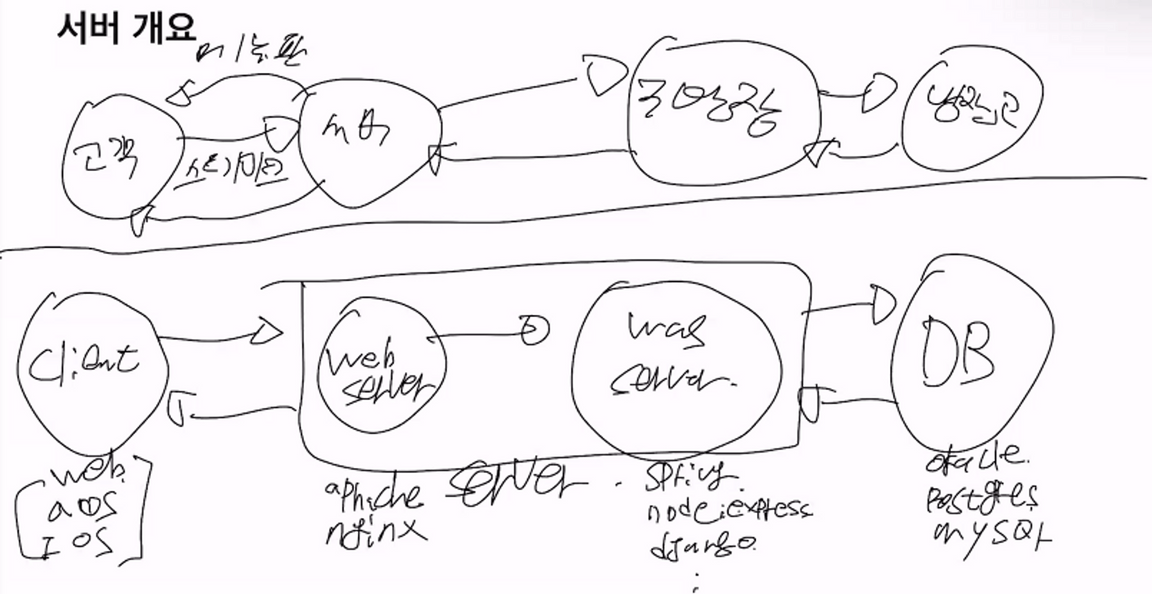 서버 개요
메뉴판
고객
서버
스테이크
주방장
냉장고
Client
web
server
was
server.
DB
web.
aOS
IOS
server.
aphche
nginx
spring.
node.express
django.
:
oracle.
Postgres
mySQL